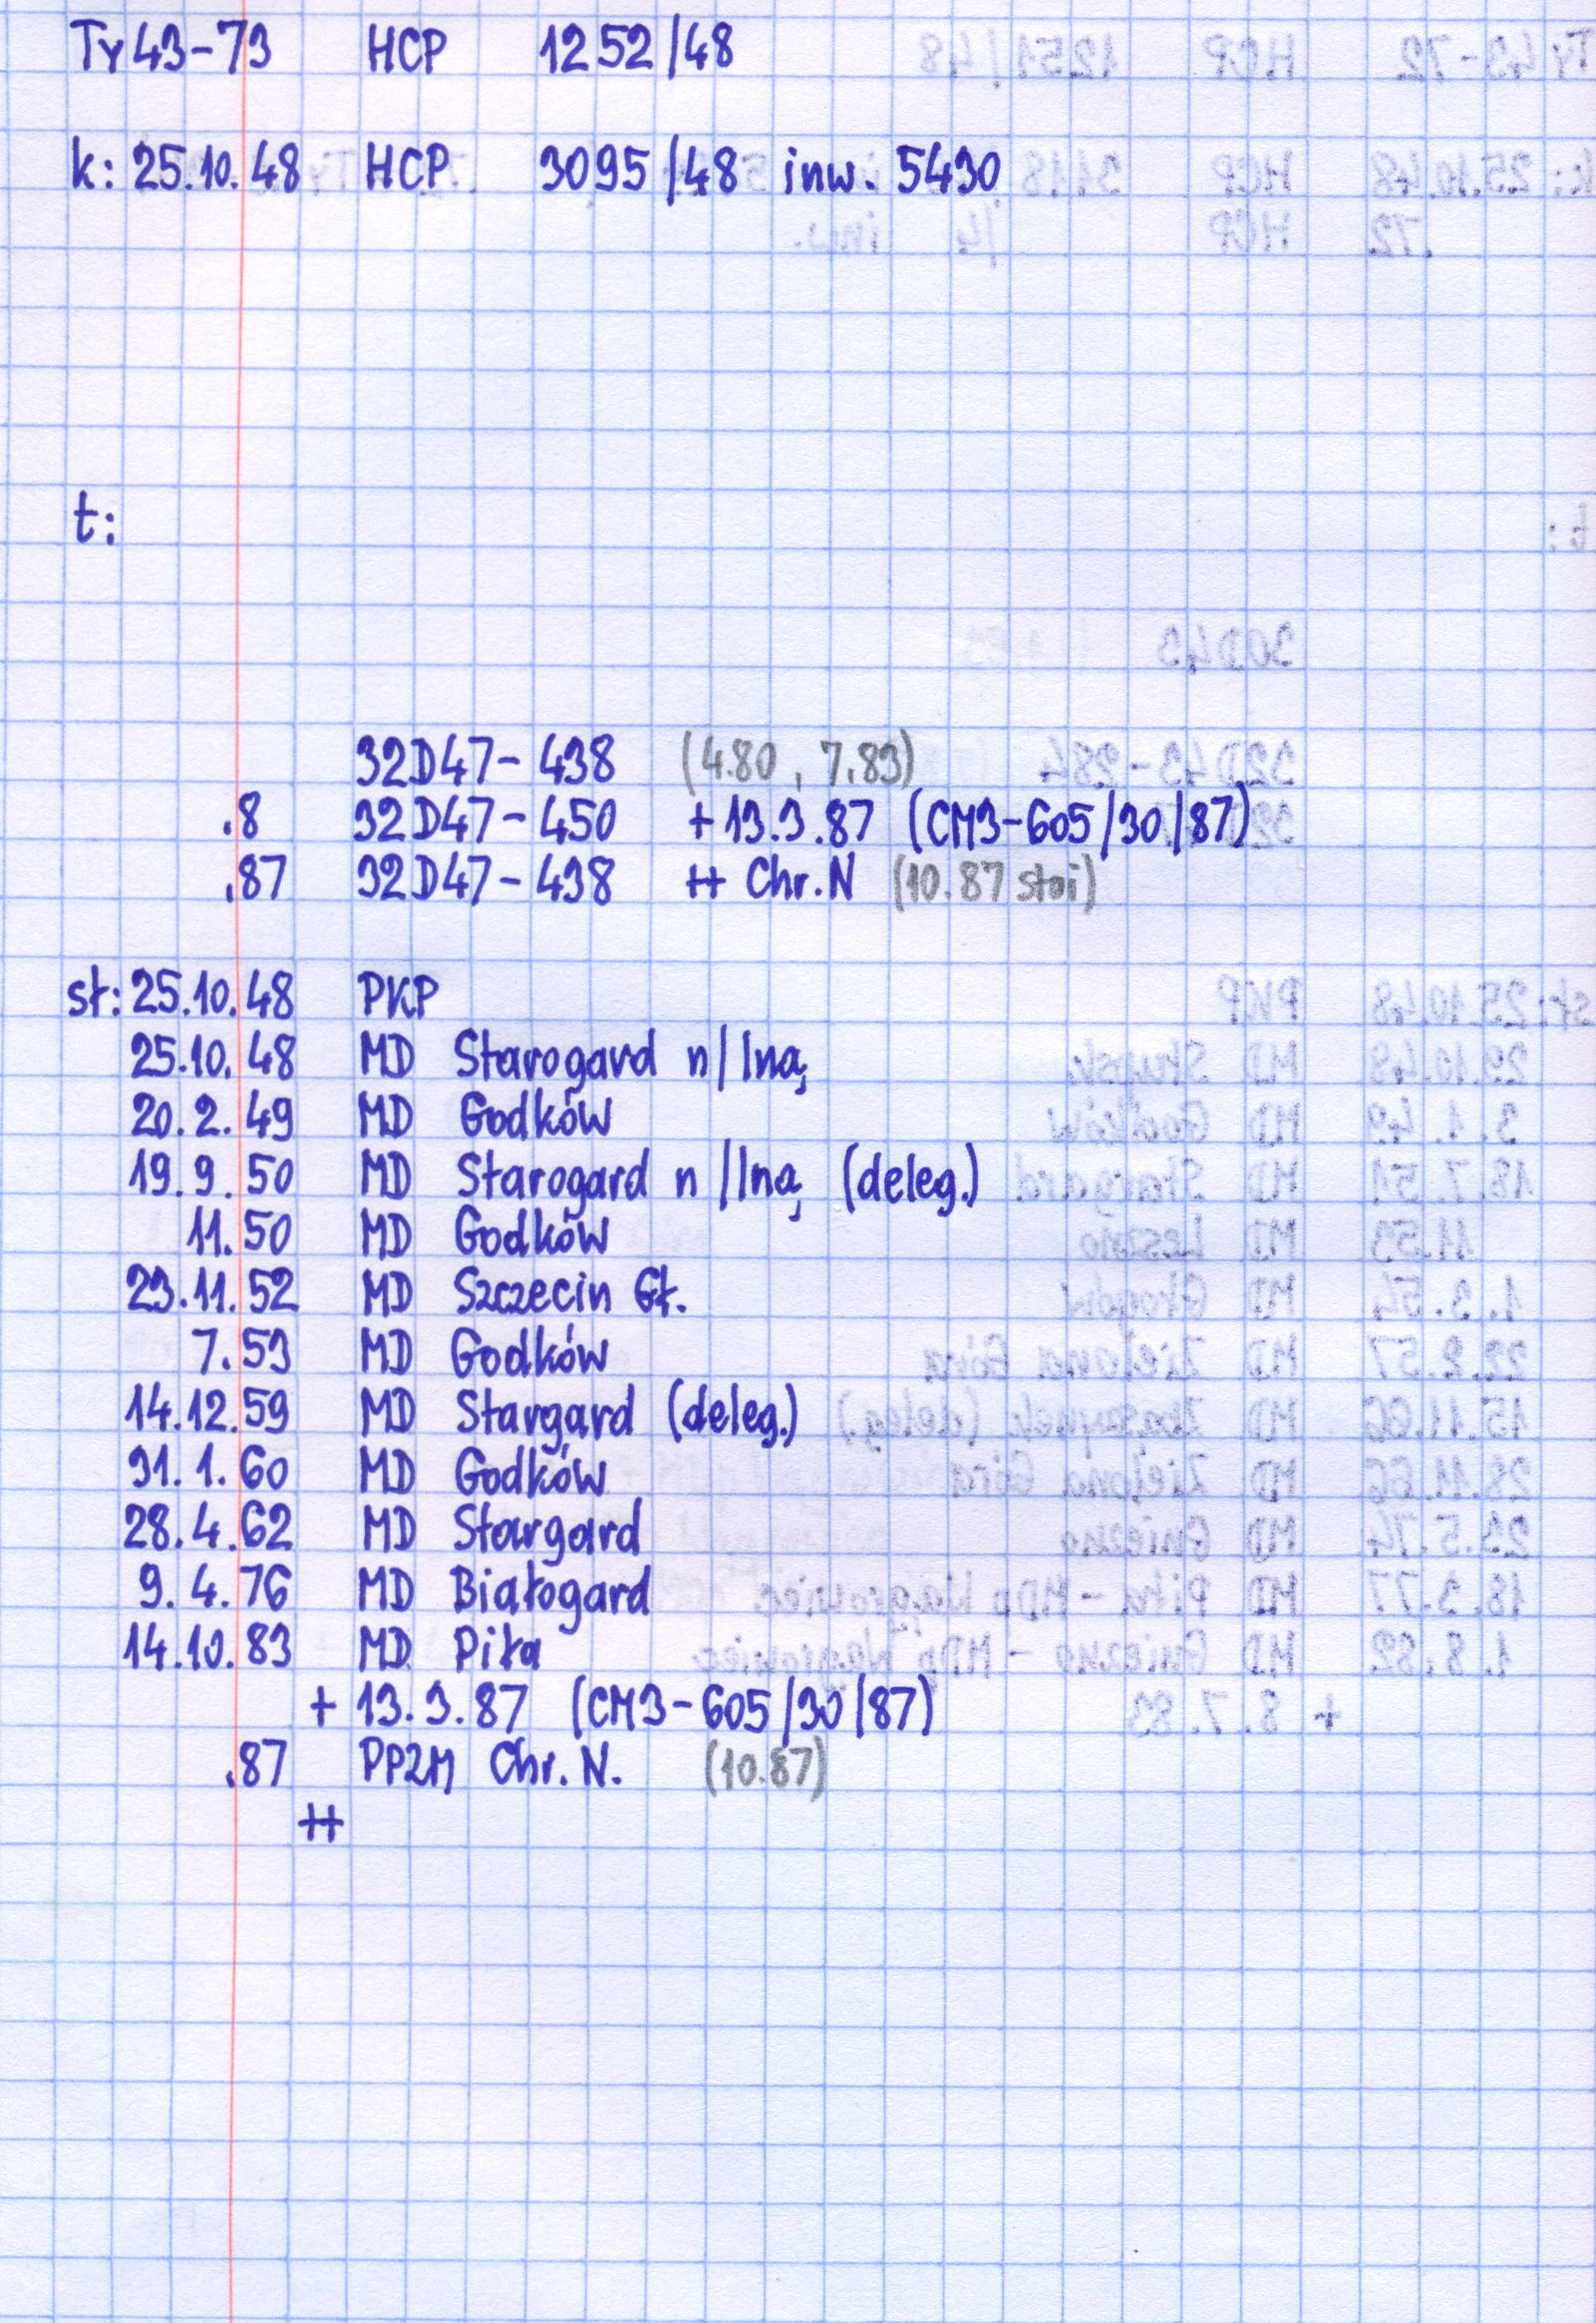 Ty43-73 HCP 1252/48
k: 25.10.48 HCP 3095/48 inw. 5430
t:
32D47-438 (4.80, 7.83)
.8 32D47-450 +13.3.87 (CM3-605/30/87)
.87 32D47-438 ++ Chr.N (10.87 stoi)
st: 25.10.48 PKP
25.10.48 MD Starogard n/Iną
20.2.49 MD Godków
19.9.50 MD Starogard n/Iną (deleg.)
11.50 MD Godków
23.11.52 MD Szczecin Gł.
7.53 MD Godków
14.12.59 MD Stargard (deleg.)
31.1.60 MD Godków
28.4.62 MD Stargard
9.4.76 MD Białogard
14.10.83 MD Piła
+ 13.3.87 (CM3-605/30/87)
.87 PP2M Chr.N. (10.87)
++